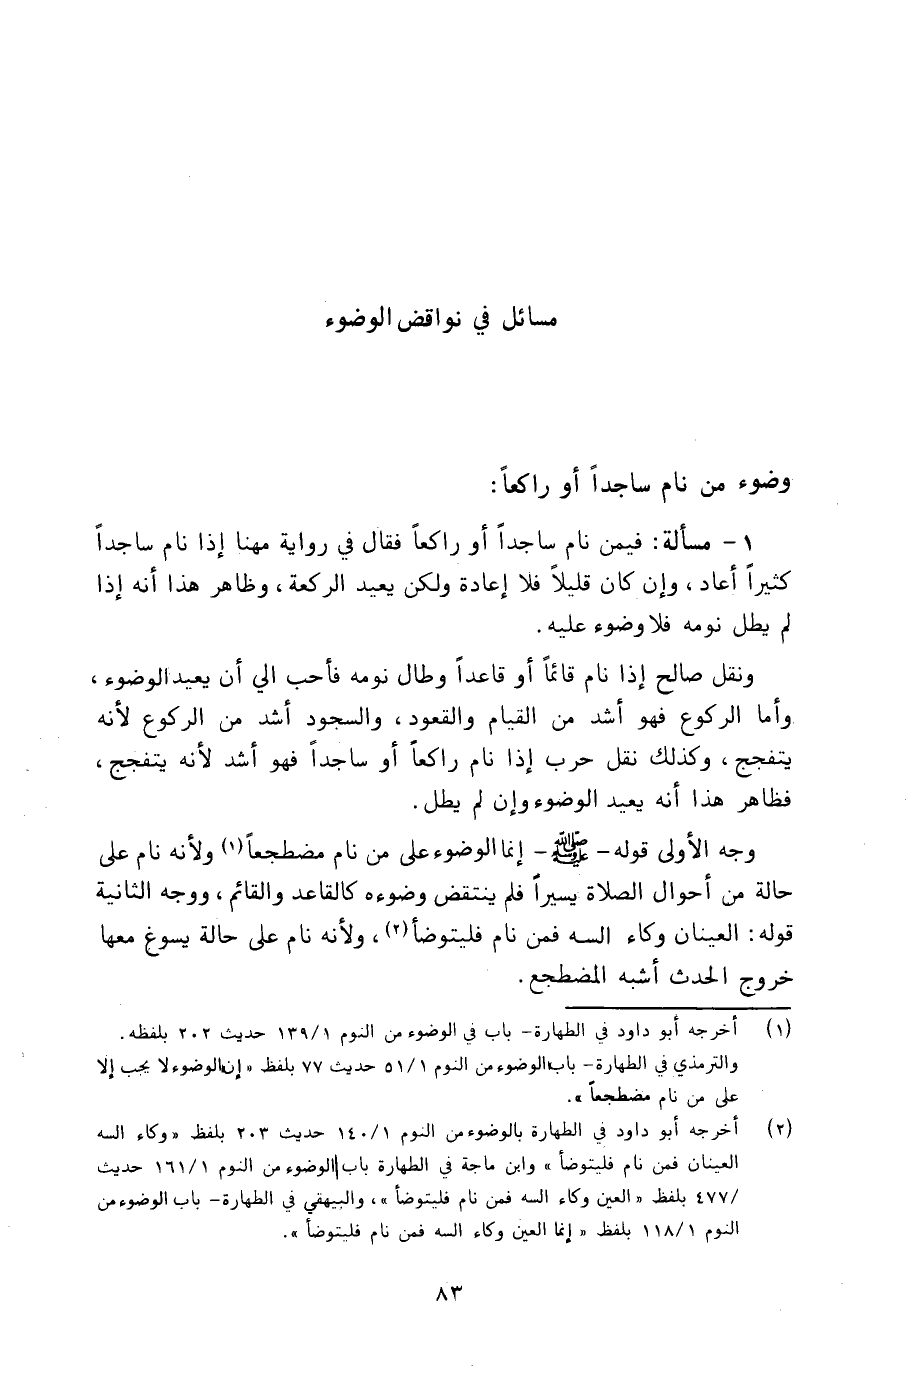 مسائل في نواقض الوضوء
وضوء من نام ساجداً أو راكعاً:
١ - مسألة: فيمن نام ساجداً أو راكعاً فقال في رواية مهنا إذا نام ساجداً
كثيراً أعاد، وإن كان قليلاً فلا إعادة ولكن يعيد الركعة، وظاهر هذا أنه إذا
لم يطل نومه فلا وضوء عليه.
ونقل صالح إذا نام قائماً أو قاعداً وطال نومه فأحب الي أن يعيد الوضوء،
وأما الركوع فهو أشد من القيام والقعود، والسجود أشد من الركوع لأنه
يتفجج، وكذلك نقل حرب إذا نام راكعاً أو ساجداً فهو أشد لأنه يتفجج،
فظاهر هذا أنه يعيد الوضوء وإن لم يطل.
وجه الأولى قوله - ﷺ - إنما الوضوء على من نام مضطجعاً(١) ولأنه نام على
حالة من أحوال الصلاة يسيراً فلم ينتقض وضوءه كالقاعد والقائم، ووجه الثانية
قوله: العينان وكاء السه فمن نام فليتوضأ(٢)، ولأنه نام على حالة يسوغ معها
خروج الحدث أشبه المضطجع.
(١) أخرجه أبو داود في الطهارة - باب في الوضوء من النوم ١٣٩/١ حديث ٢٠٢ بلفظه.
والترمذي في الطهارة - باب الوضوء من النوم ٥١/١ حديث ٧٧ بلفظ « إن الوضوء لا يجب إلا
على من نام مضطجعاً ».
(٢) أخرجه أبو داود في الطهارة بالوضوء من النوم ١٤٠/١ حديث ٢٠٣ بلفظ « وكاء السه
العينان فمن نام فليتوضأ » وابن ماجة في الطهارة باب الوضوء من النوم ١٦١/١ حديث
/٤٧٧ بلفظ « العين وكاء السه فمن نام فليتوضأ »، والبيهقي في الطهارة - باب الوضوء من
النوم ١١٨/١ بلفظ « إنما العين وكاء السه فمن نام فليتوضأ ».
٨٣